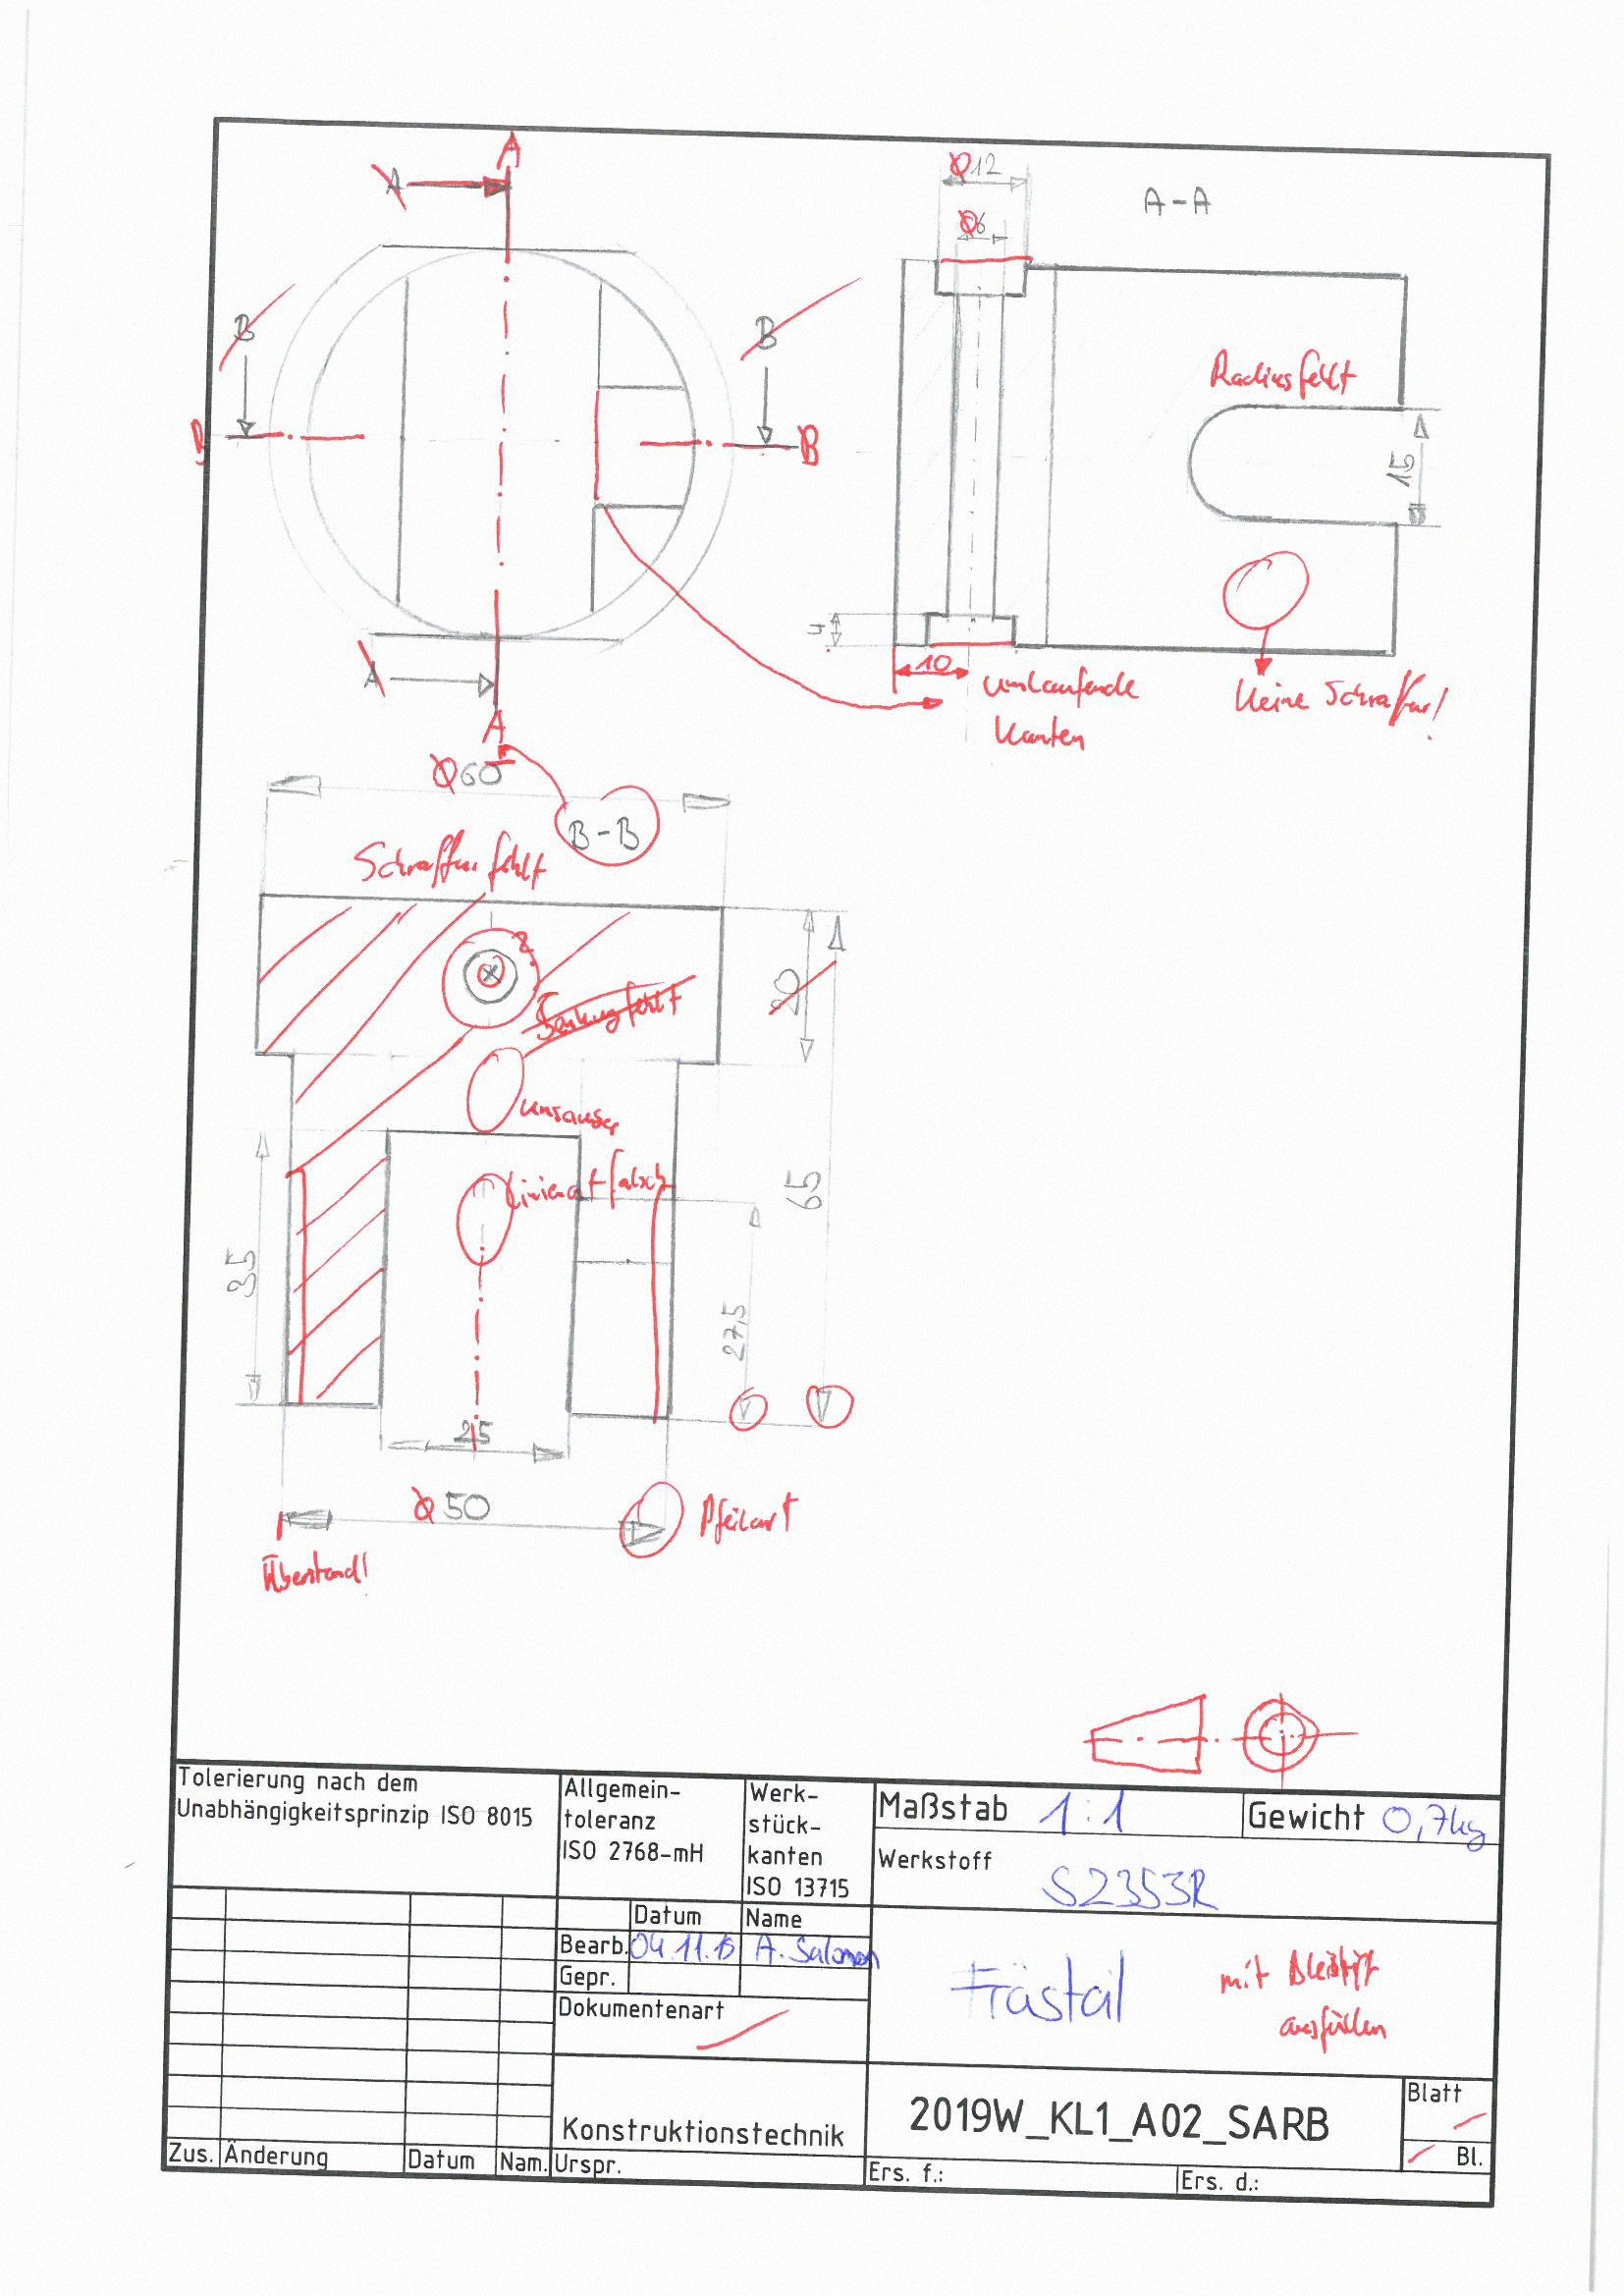 A
A
Ø12
A-A
Ø6
B
B
Radius fehlt
B
B
15
4
A
10
umlaufende
Kanten
keine Schraffur!
A
Ø60
B-B
Schraffur fehlt
20
Senkung fehlt
unsauber
Linienart falsch
65
35
27,5
25
Ø50
Pfeilart
Überstand!
Tolerierung nach dem
Unabhängigkeitsprinzip ISO 8015
Allgemein-
toleranz
ISO 2768-mH
Werk-
stück-
kanten
ISO 13715
Maßstab 1:1
Gewicht 0,7kg
Werkstoff
S2353R
Datum
Name
Bearb. 04.11.19 A. Salomon
Gepr.
Frästeil
mit Bleistift
ausfüllen
Dokumentenart
Konstruktionstechnik
2019W_KL1_A02_SARB
Blatt
Bl.
Zus. Änderung Datum Nam. Urspr.
Ers. f.:
Ers. d.: